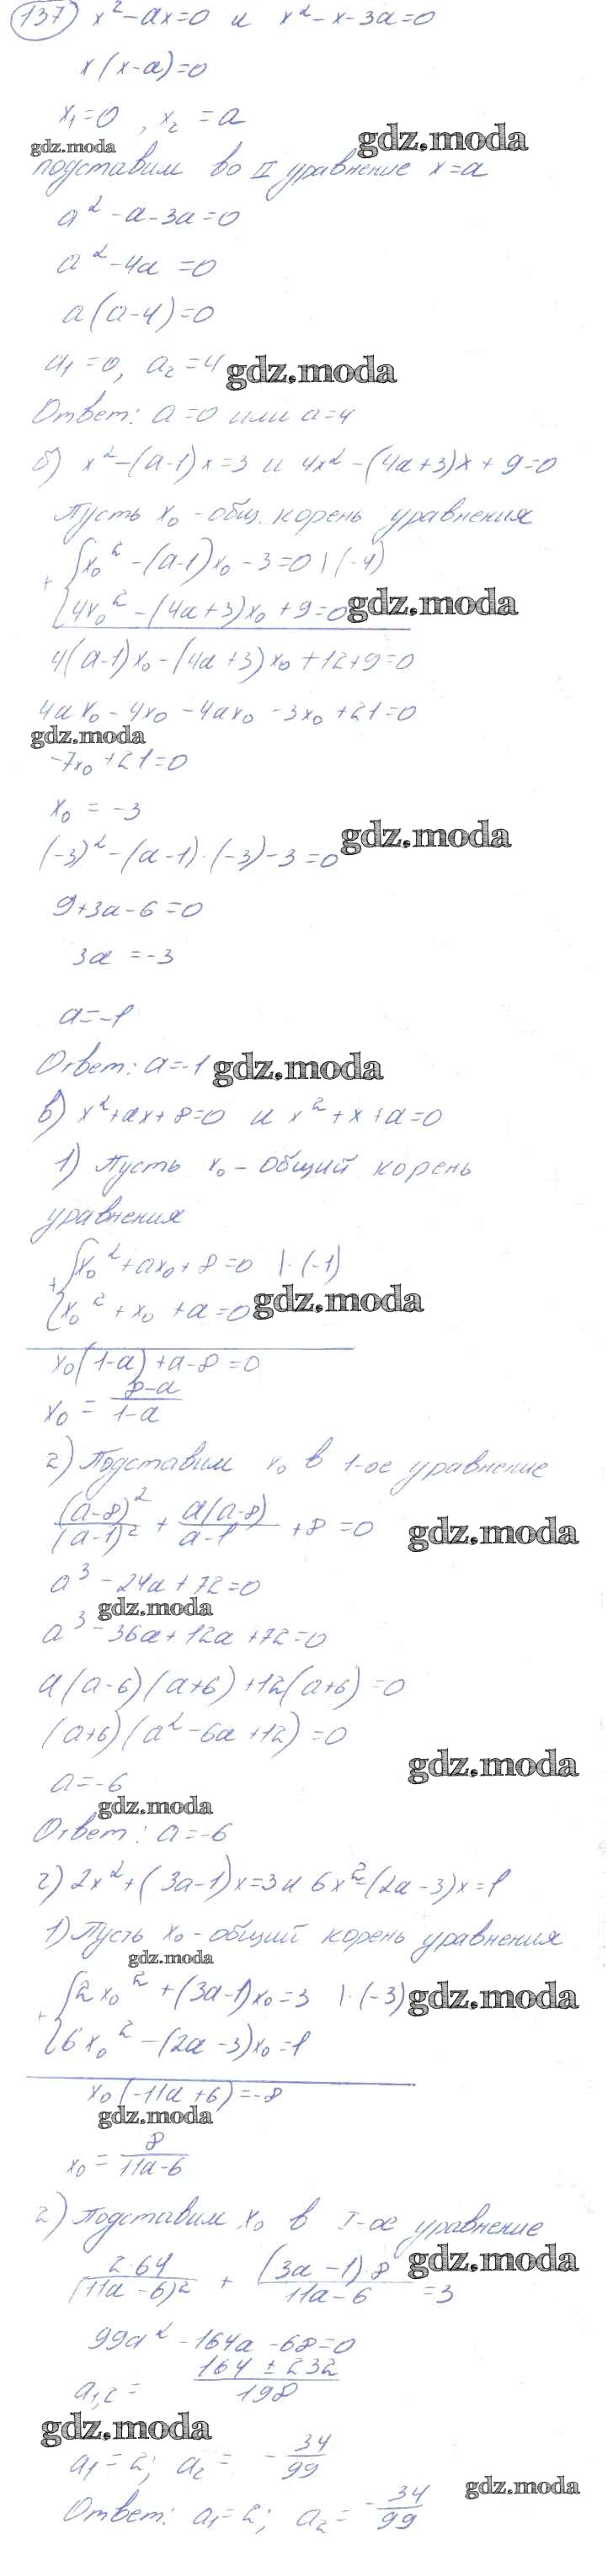 137) x² - ax = 0 и x² - x - 3a = 0
x(x-a) = 0
x₁ = 0, x₂ = a
gdz.moda
gdz.moda
подставим во II уравнение x = a
a² - a - 3a = 0
a² - 4a = 0
a(a-4) = 0
a₁ = 0, a₂ = 4
gdz.moda
Ответ: a = 0 или a = 4
б) x² - (a-1)x = 3 и 4x² - (4a+3)x + 9 = 0
Пусть x₀ - общ. корень уравнения
+ { x₀² - (a-1)x₀ - 3 = 0 | (-4)
4x₀² - (4a+3)x₀ + 9 = 0
gdz.moda
4(a-1)x₀ - (4a+3)x₀ + 12 + 9 = 0
4ax₀ - 4x₀ - 4ax₀ - 3x₀ + 21 = 0
gdz.moda
-7x₀ + 21 = 0
x₀ = -3
gdz.moda
(-3)² - (a-1)·(-3) - 3 = 0
9 + 3a - 6 = 0
3a = -3
a = -1
Ответ: a = -1
gdz.moda
в) x² + ax + 8 = 0 и x² + x + a = 0
1) Пусть x₀ - общий корень
уравнения
+ { x₀² + ax₀ + 8 = 0 | · (-1)
x₀² + x₀ + a = 0
gdz.moda
x₀(1-a) + a - 8 = 0
x₀ = (8-a)/(1-a)
2) Подставим x₀ в 1-ое уравнение
(a-8)²/(a-1)² + a(a-8)/(a-1) + 8 = 0
gdz.moda
a³ - 24a + 72 = 0
gdz.moda
a³ - 36a + 12a + 72 = 0
a(a-6)(a+6) + 12(a+6) = 0
(a+6)(a² - 6a + 12) = 0
gdz.moda
a = -6
gdz.moda
Ответ: a = -6
г) 2x² + (3a-1)x = 3 и 6x² - (2a-3)x = 1
1) Пусть x₀ - общий корень уравнения
gdz.moda
+ { 2x₀² + (3a-1)x₀ = 3 | · (-3)
gdz.moda
6x₀² - (2a-3)x₀ = 1
x₀(-11a + 6) = -8
gdz.moda
x₀ = 8/(11a-6)
2) Подставим x₀ в I-ое уравнение
gdz.moda
2·64/(11a-6)² + (3a-1)·8/(11a-6) = 3
99a² - 164a - 68 = 0
a₁,₂ = (164 ± 232)/198
gdz.moda
a₁ = 2; a₂ = -34/99
gdz.moda
Ответ: a₁ = 2; a₂ = -34/99